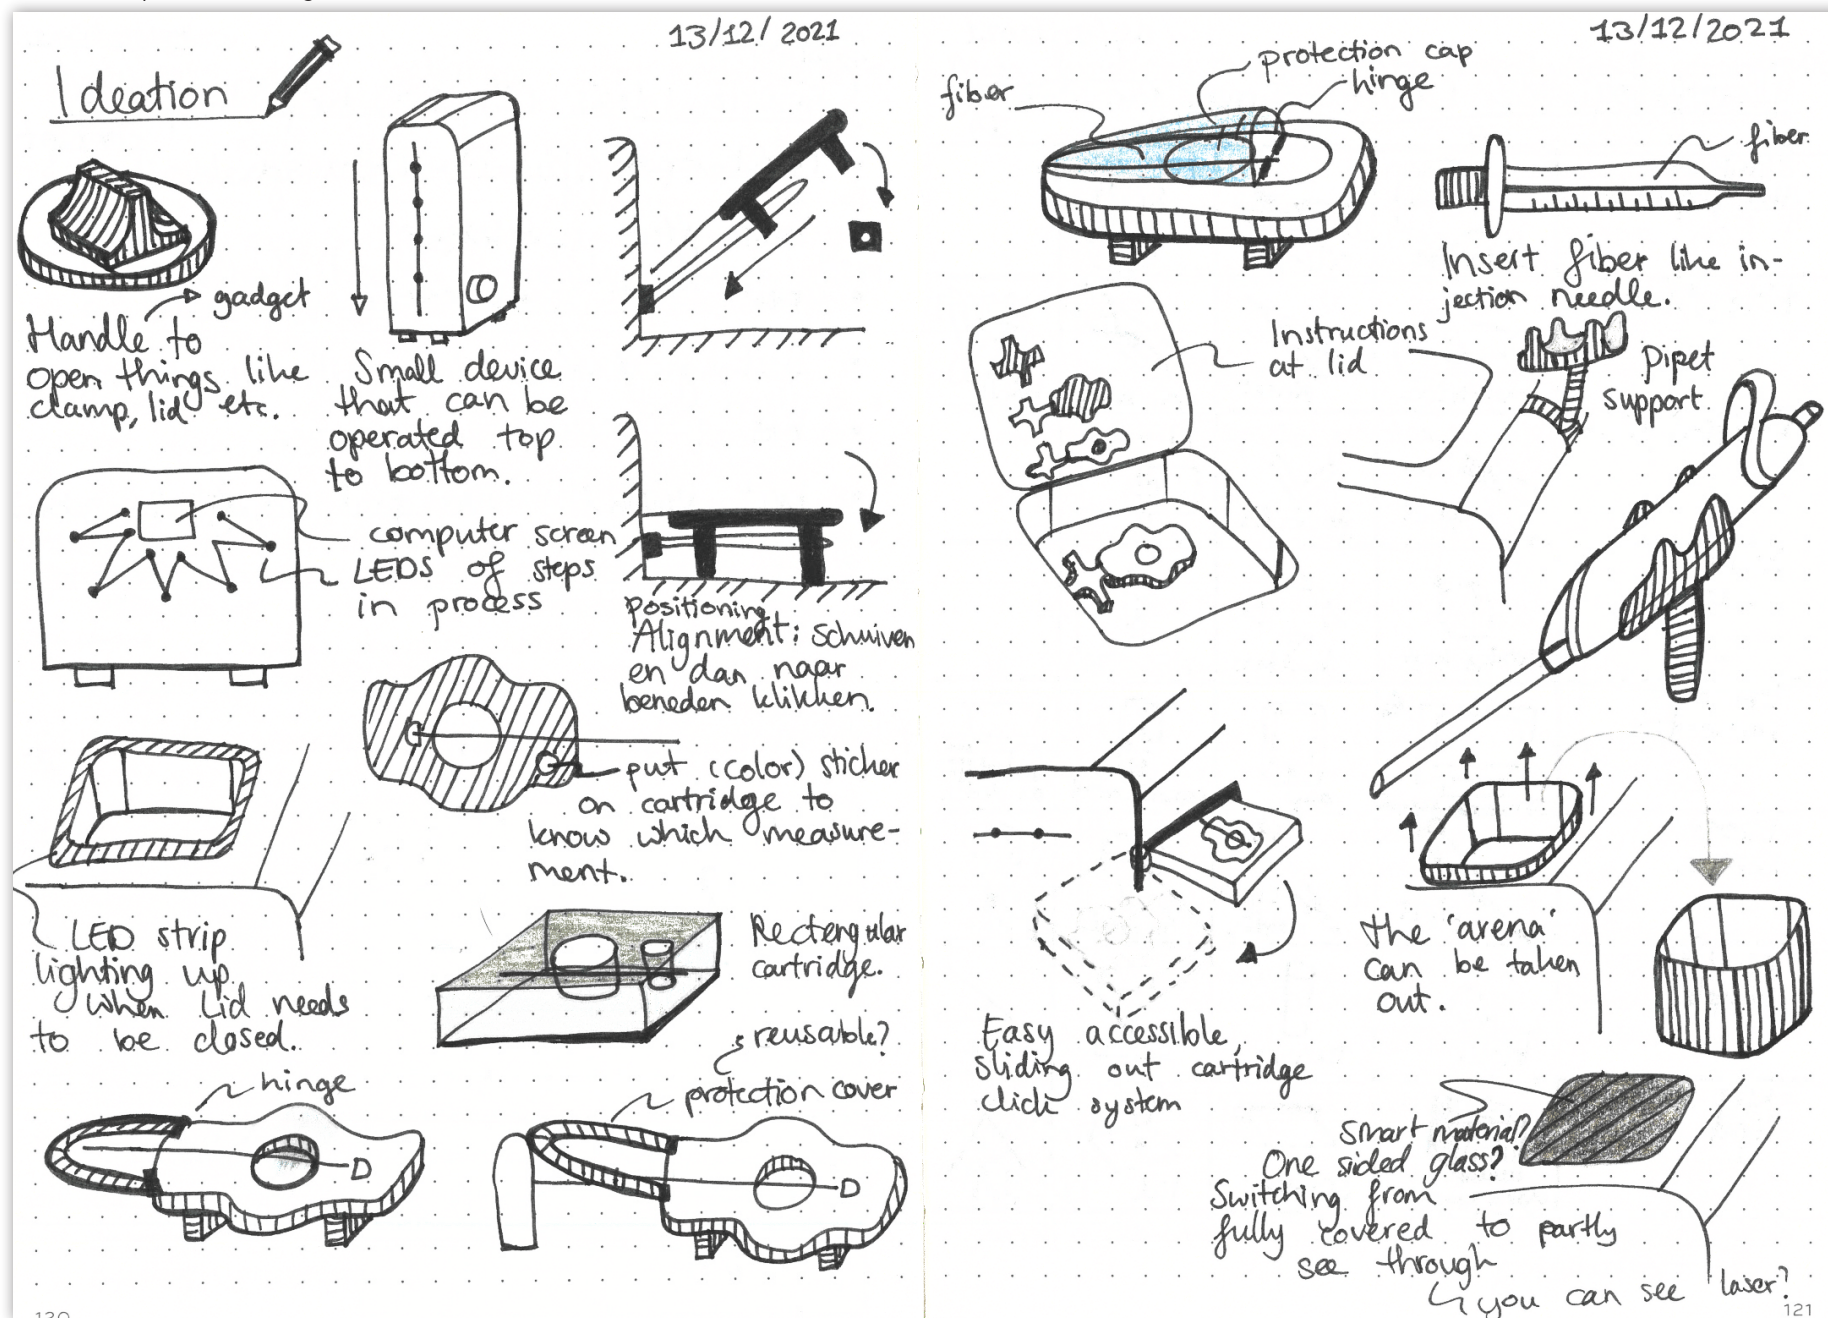 13/12/2021
Ideation
gadget
Handle to
open things like
clamp, lid etc.
Small device
that can be
operated top
to bottom.
computer screen
LEDS of steps
in process
positioning
Alignment: schuiven
en dan naar
beneden klikken.
put (color) sticker
on cartridge to
know which measure-
ment.
LED strip
lighting up
when lid needs
to be closed.
Rectengular
cartridge.
reusable?
hinge
protection cover
D
D
120
13/12/2021
protection cap
hinge
fiber
fiber
Insert fiber like in-
jection needle.
Instructions
at lid
pipet
support
Easy accessible,
sliding out cartridge
click system
the 'arena'
can be taken
out.
smart material?
One sided glass?
Switching from
fully covered to partly
see through
you can see laser?
121